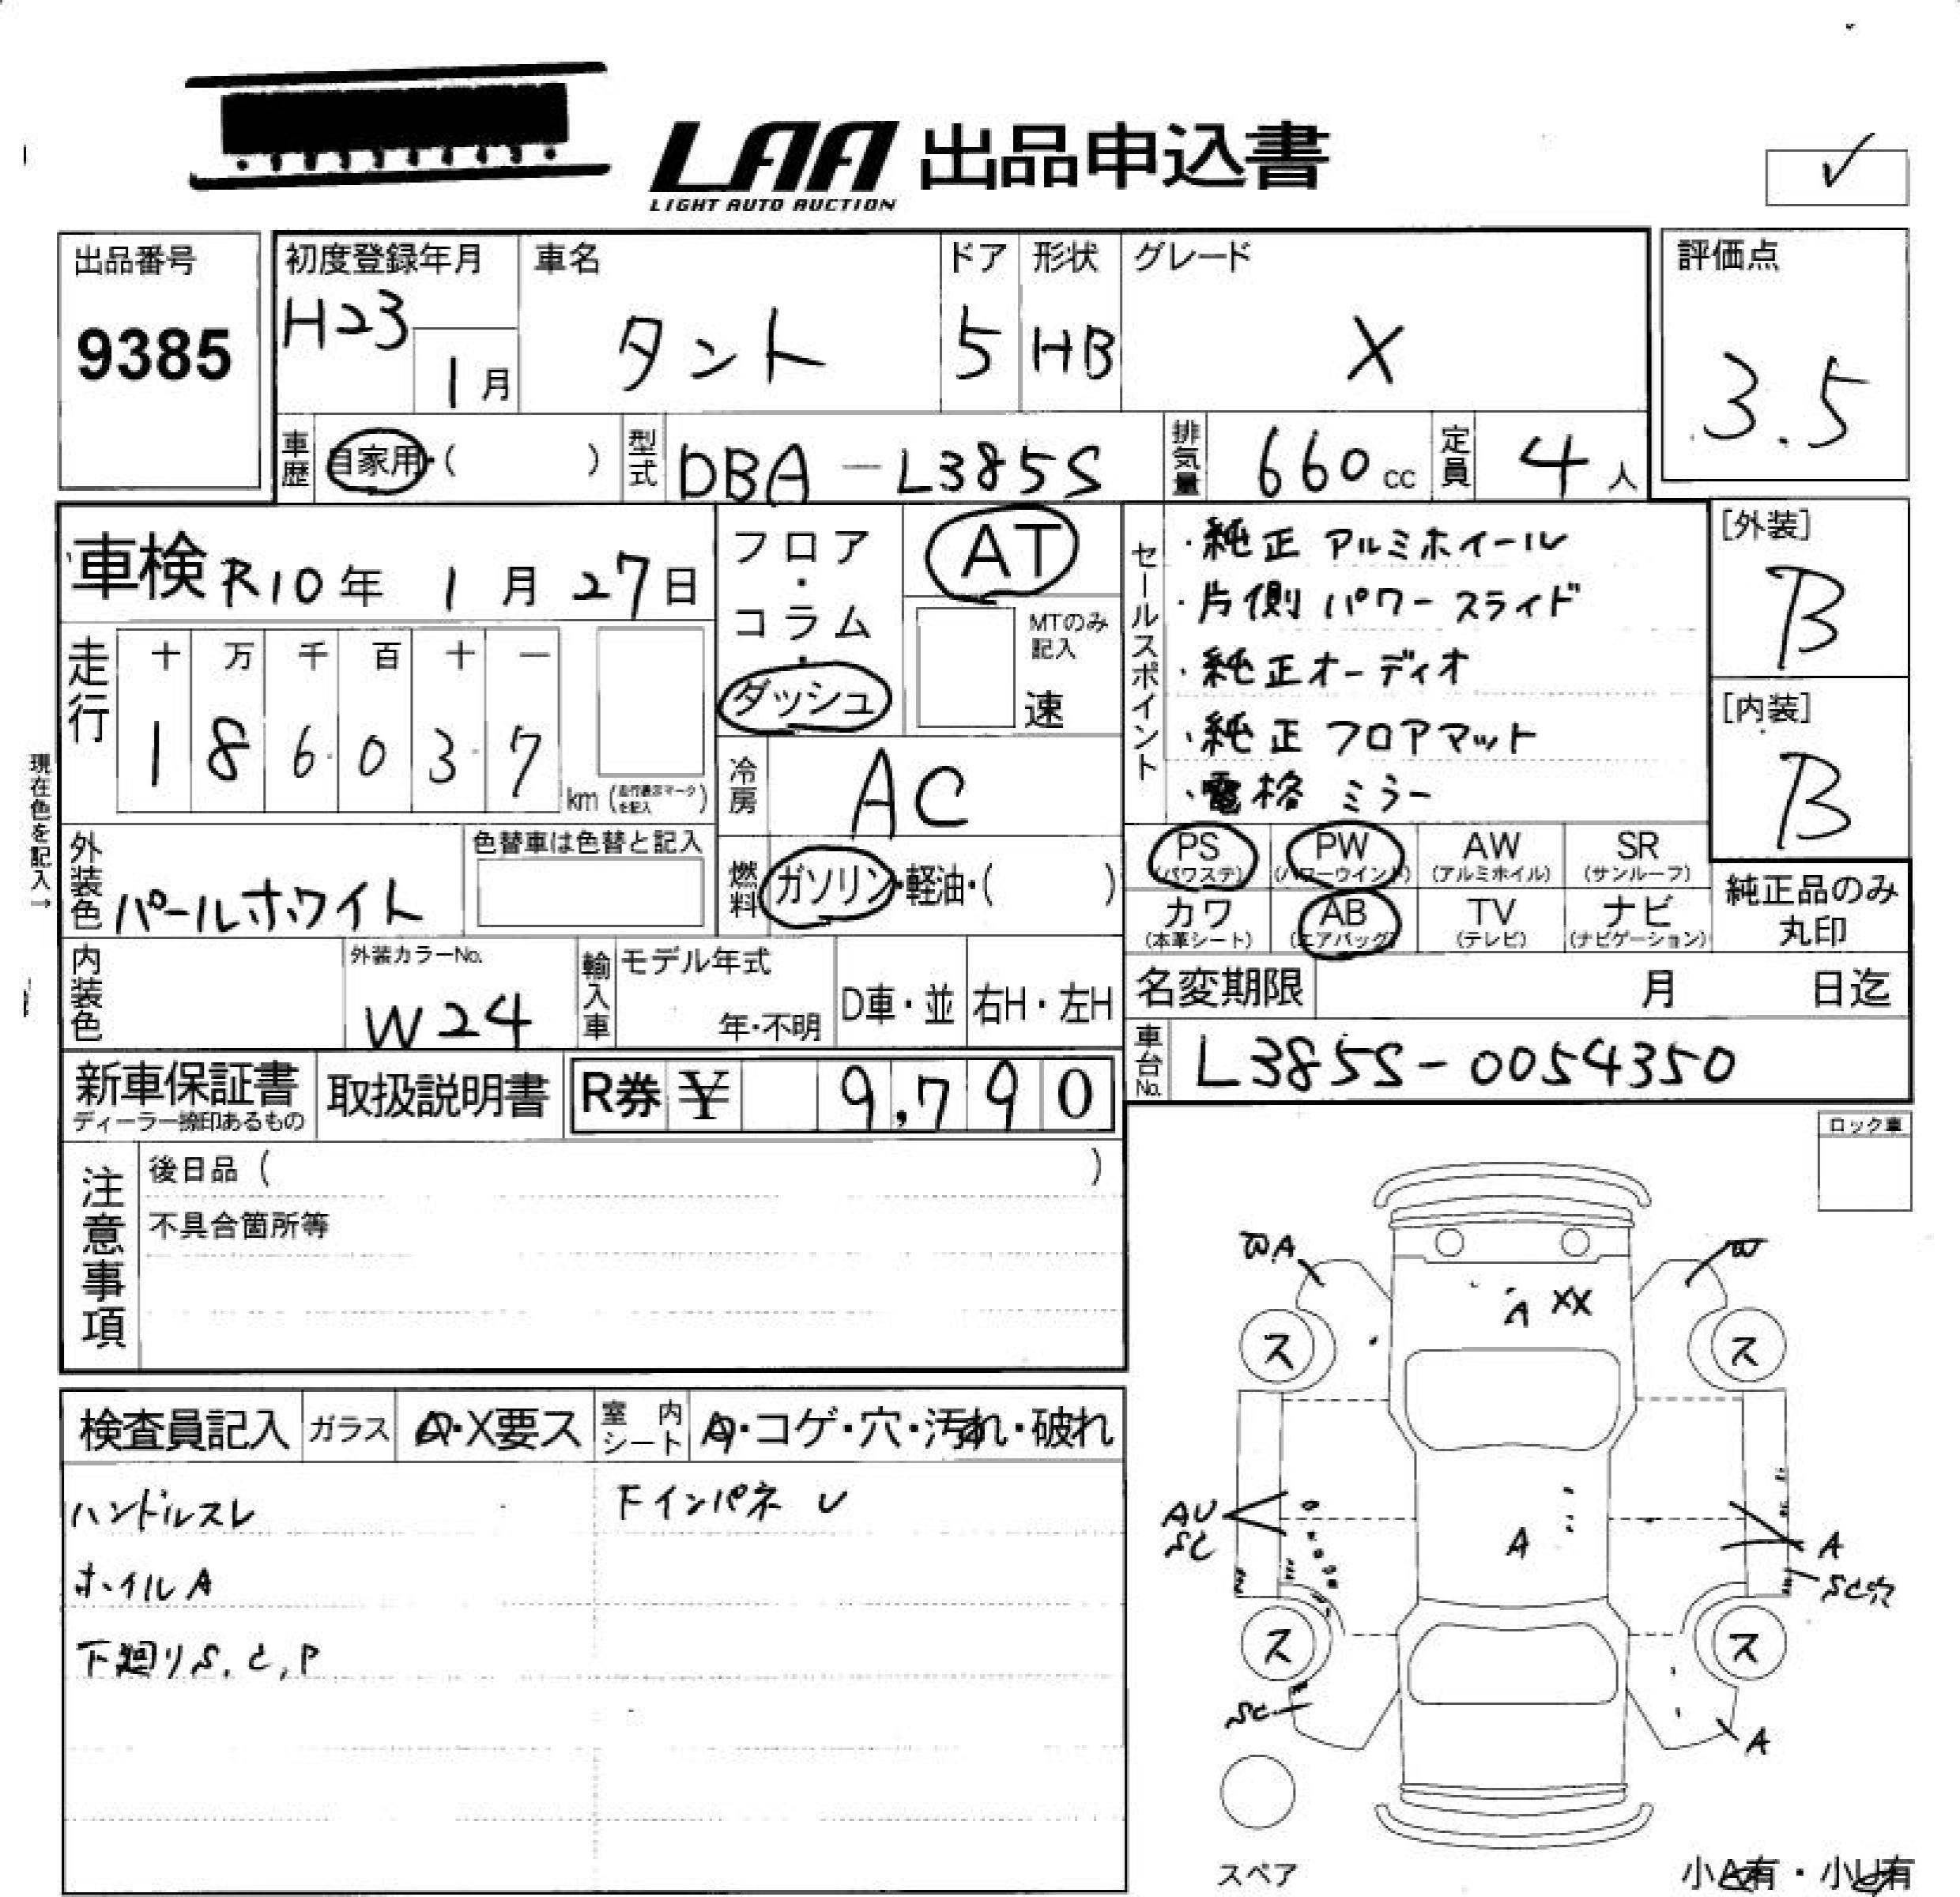 LAA 出品申込書
LIGHT AUTO AUCTION
✓
出品番号
9385
初度登録年月
H23
1月
車名
タント
ドア
5
形状
HB
グレード
X
評価点
3.5
車歴
自家用・( )
型式
DBA-L385S
排気量
660cc
定員
4人
車検 R10年 1月 27日
フロア・コラム・ダッシュ
AT
MTのみ記入
速
セールスポイント
・純正 アルミホイール
・片側パワースライド
・純正オーディオ
・純正フロアマット
・電格ミラー
[外装]
B
[内装]
B
走行
十 万 千 百 十 一
1 8 6 0 3 7
km (走行表示マークを記入)
現在色を記入→
冷房
AC
外装色
パールホワイト
色替車は色替と記入
燃料
ガソリン・軽油・( )
PS (パワステ)
PW (パワーウインド)
AW (アルミホイル)
SR (サンルーフ)
カワ (本革シート)
AB (エアバッグ)
TV (テレビ)
ナビ (ナビゲーション)
純正品のみ丸印
内装色
外装カラーNo.
W24
輸入車
モデル年式
年・不明
D車・並
右H・左H
名変期限
月 日迄
車台No.
L385S-0054350
新車保証書
ディーラー捺印あるもの
取扱説明書
R券 ¥ 9,790
注意事項
後日品 ( )
不具合箇所等
ロック車
検査員記入
ガラス
A・X要ス
室内シート
A・コゲ・穴・汚れ・破れ
ハンドルスレ
ホイルA
下廻りS,C,P
下インパネ U
A
W
A XX
ス
ス
AU
SC
A
A
SC穴
ス
ス
SC
A
スペア
小A有・小U有